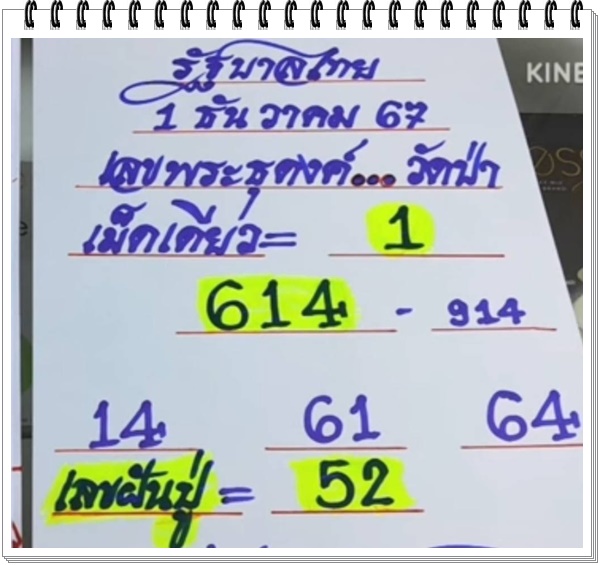 รัฐบาลไทย
1 ธันวาคม 67
เลขพระธุดงค์... วัดป่า
เม็ดเดียว = 1
614 - 914
14 61 64
เลขฝันปู่ = 52
KINE